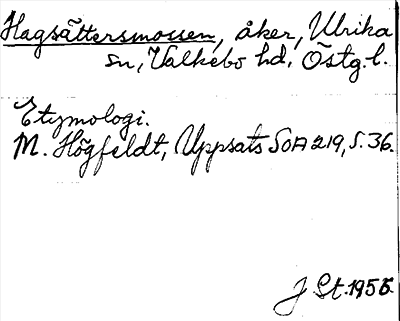 Hagsättersmossen, åker, Ulrika
sn, Valkebo hd, Östg. l.
Etymologi.
M. Högfeldt, Uppsats SOA 219, s. 36.
J St. 1955.